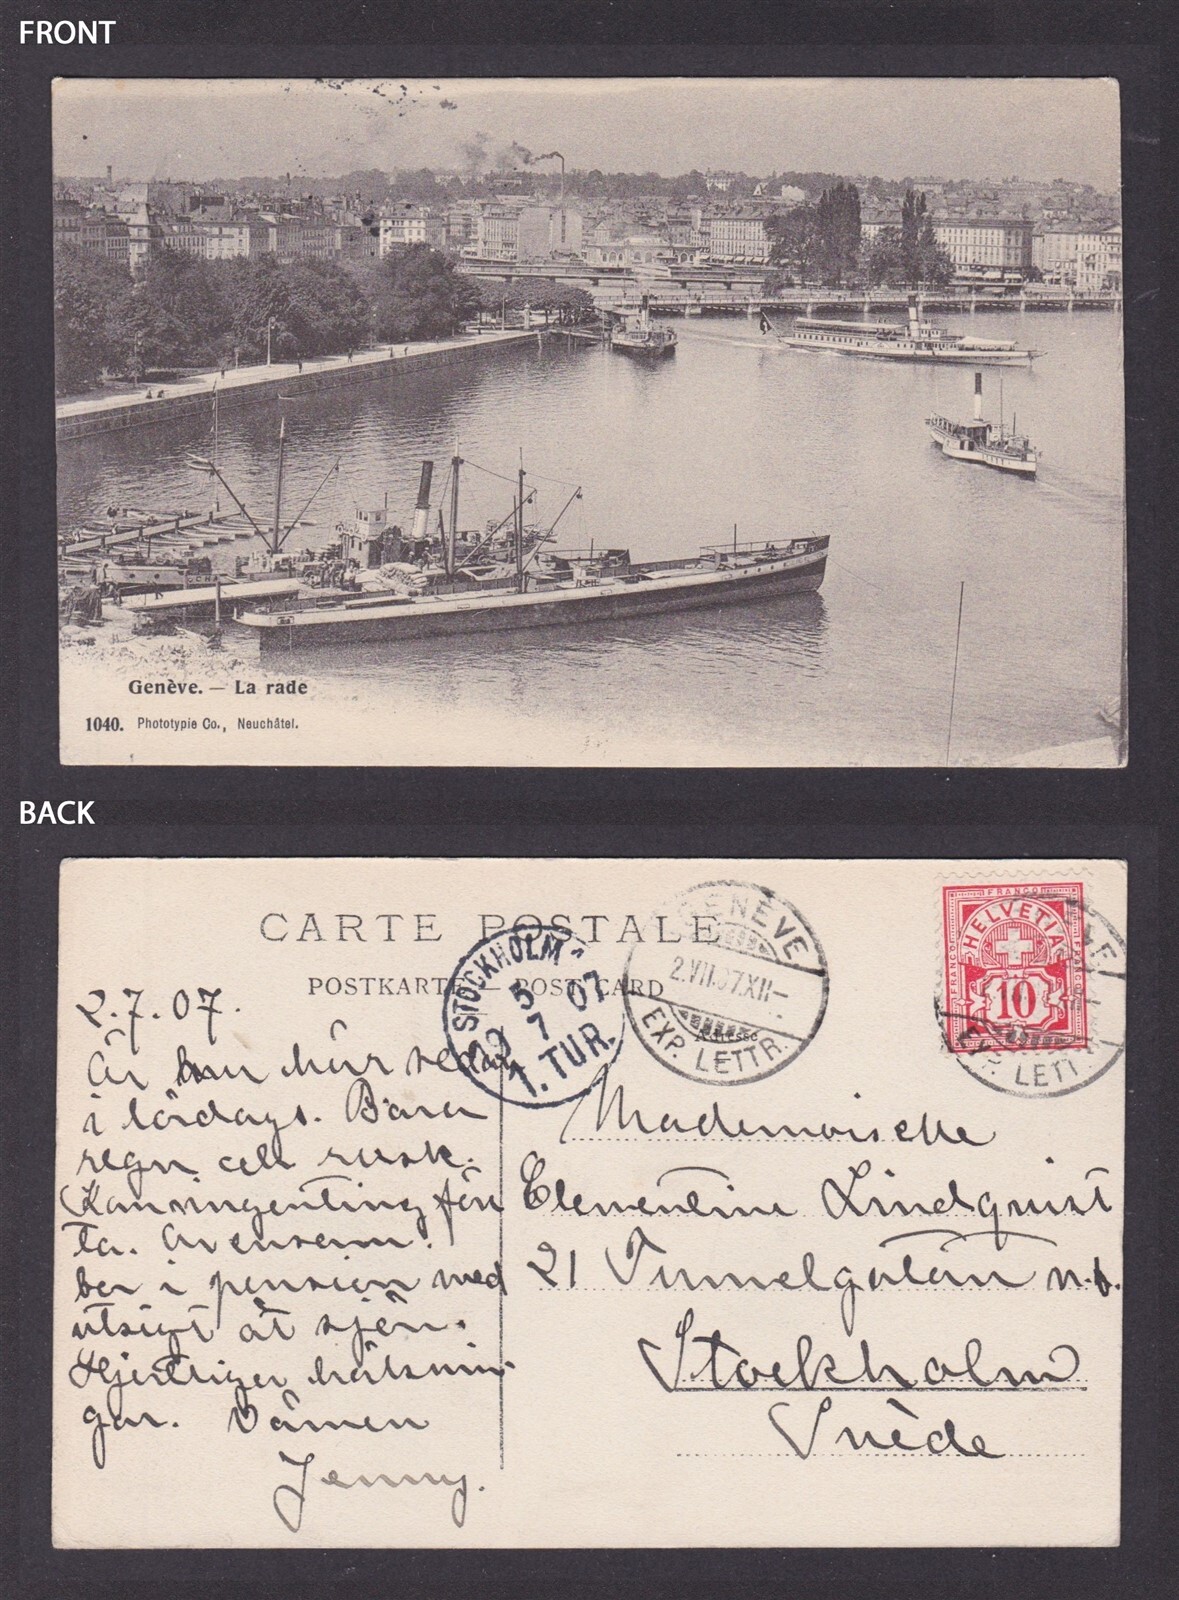 FRONT
Genève. — La rade
1040. Phototypie Co., Neuchâtel.
BACK
CARTE POSTALE
POSTKARTE — POST CARD
Adresse
STOCKHOLM
5
7 07
1. TUR.
GENÈVE
2.VII.07.XII–
EXP. LETTR.
FRANCO
HELVETIA
FRANCO
FRANCO
10
EXP. LETTR.
2.7.07.
Är här sedan
i lördags. Bara
regn och rusk.
för
ta. Är ensam.
bor i pension med
utsigt åt sjön.
Hjertliga helsnin
gar.
Jenny.
Mademoiselle
Clementine Lindquist
21 Tunnelgatan n.b.
Stockholm
Suède